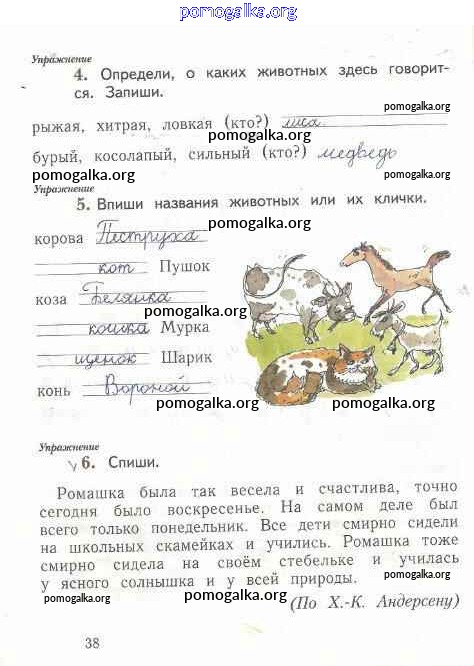 pomogalka.org
Упражнение
4. Определи, о каких животных здесь говорит-
ся. Запиши.
pomogalka.org
рыжая, хитрая, ловкая (кто?) лиса
pomogalka.org
бурый, косолапый, сильный (кто?) медведь
pomogalka.org pomogalka.org pomogalka.org
Упражнение
5. Впиши названия животных или их клички.
pomogalka.org
корова Пеструха
кот Пушок
коза Белянка
pomogalka.org
кошка Мурка
щенок Шарик
конь Вороной
pomogalka.org pomogalka.org
Упражнение
√6. Спиши.
pomogalka.org
Ромашка была так весела и счастлива, точно
сегодня было воскресенье. На самом деле был
всего только понедельник. Все дети смирно сидели
на школьных скамейках и учились. Ромашка тоже
смирно сидела на своём стебельке и училась
у ясного солнышка и у всей природы.
pomogalka.org
pomogalka.org pomogalka.org
(По Х.-К. Андерсену)
38
pomogalka.org